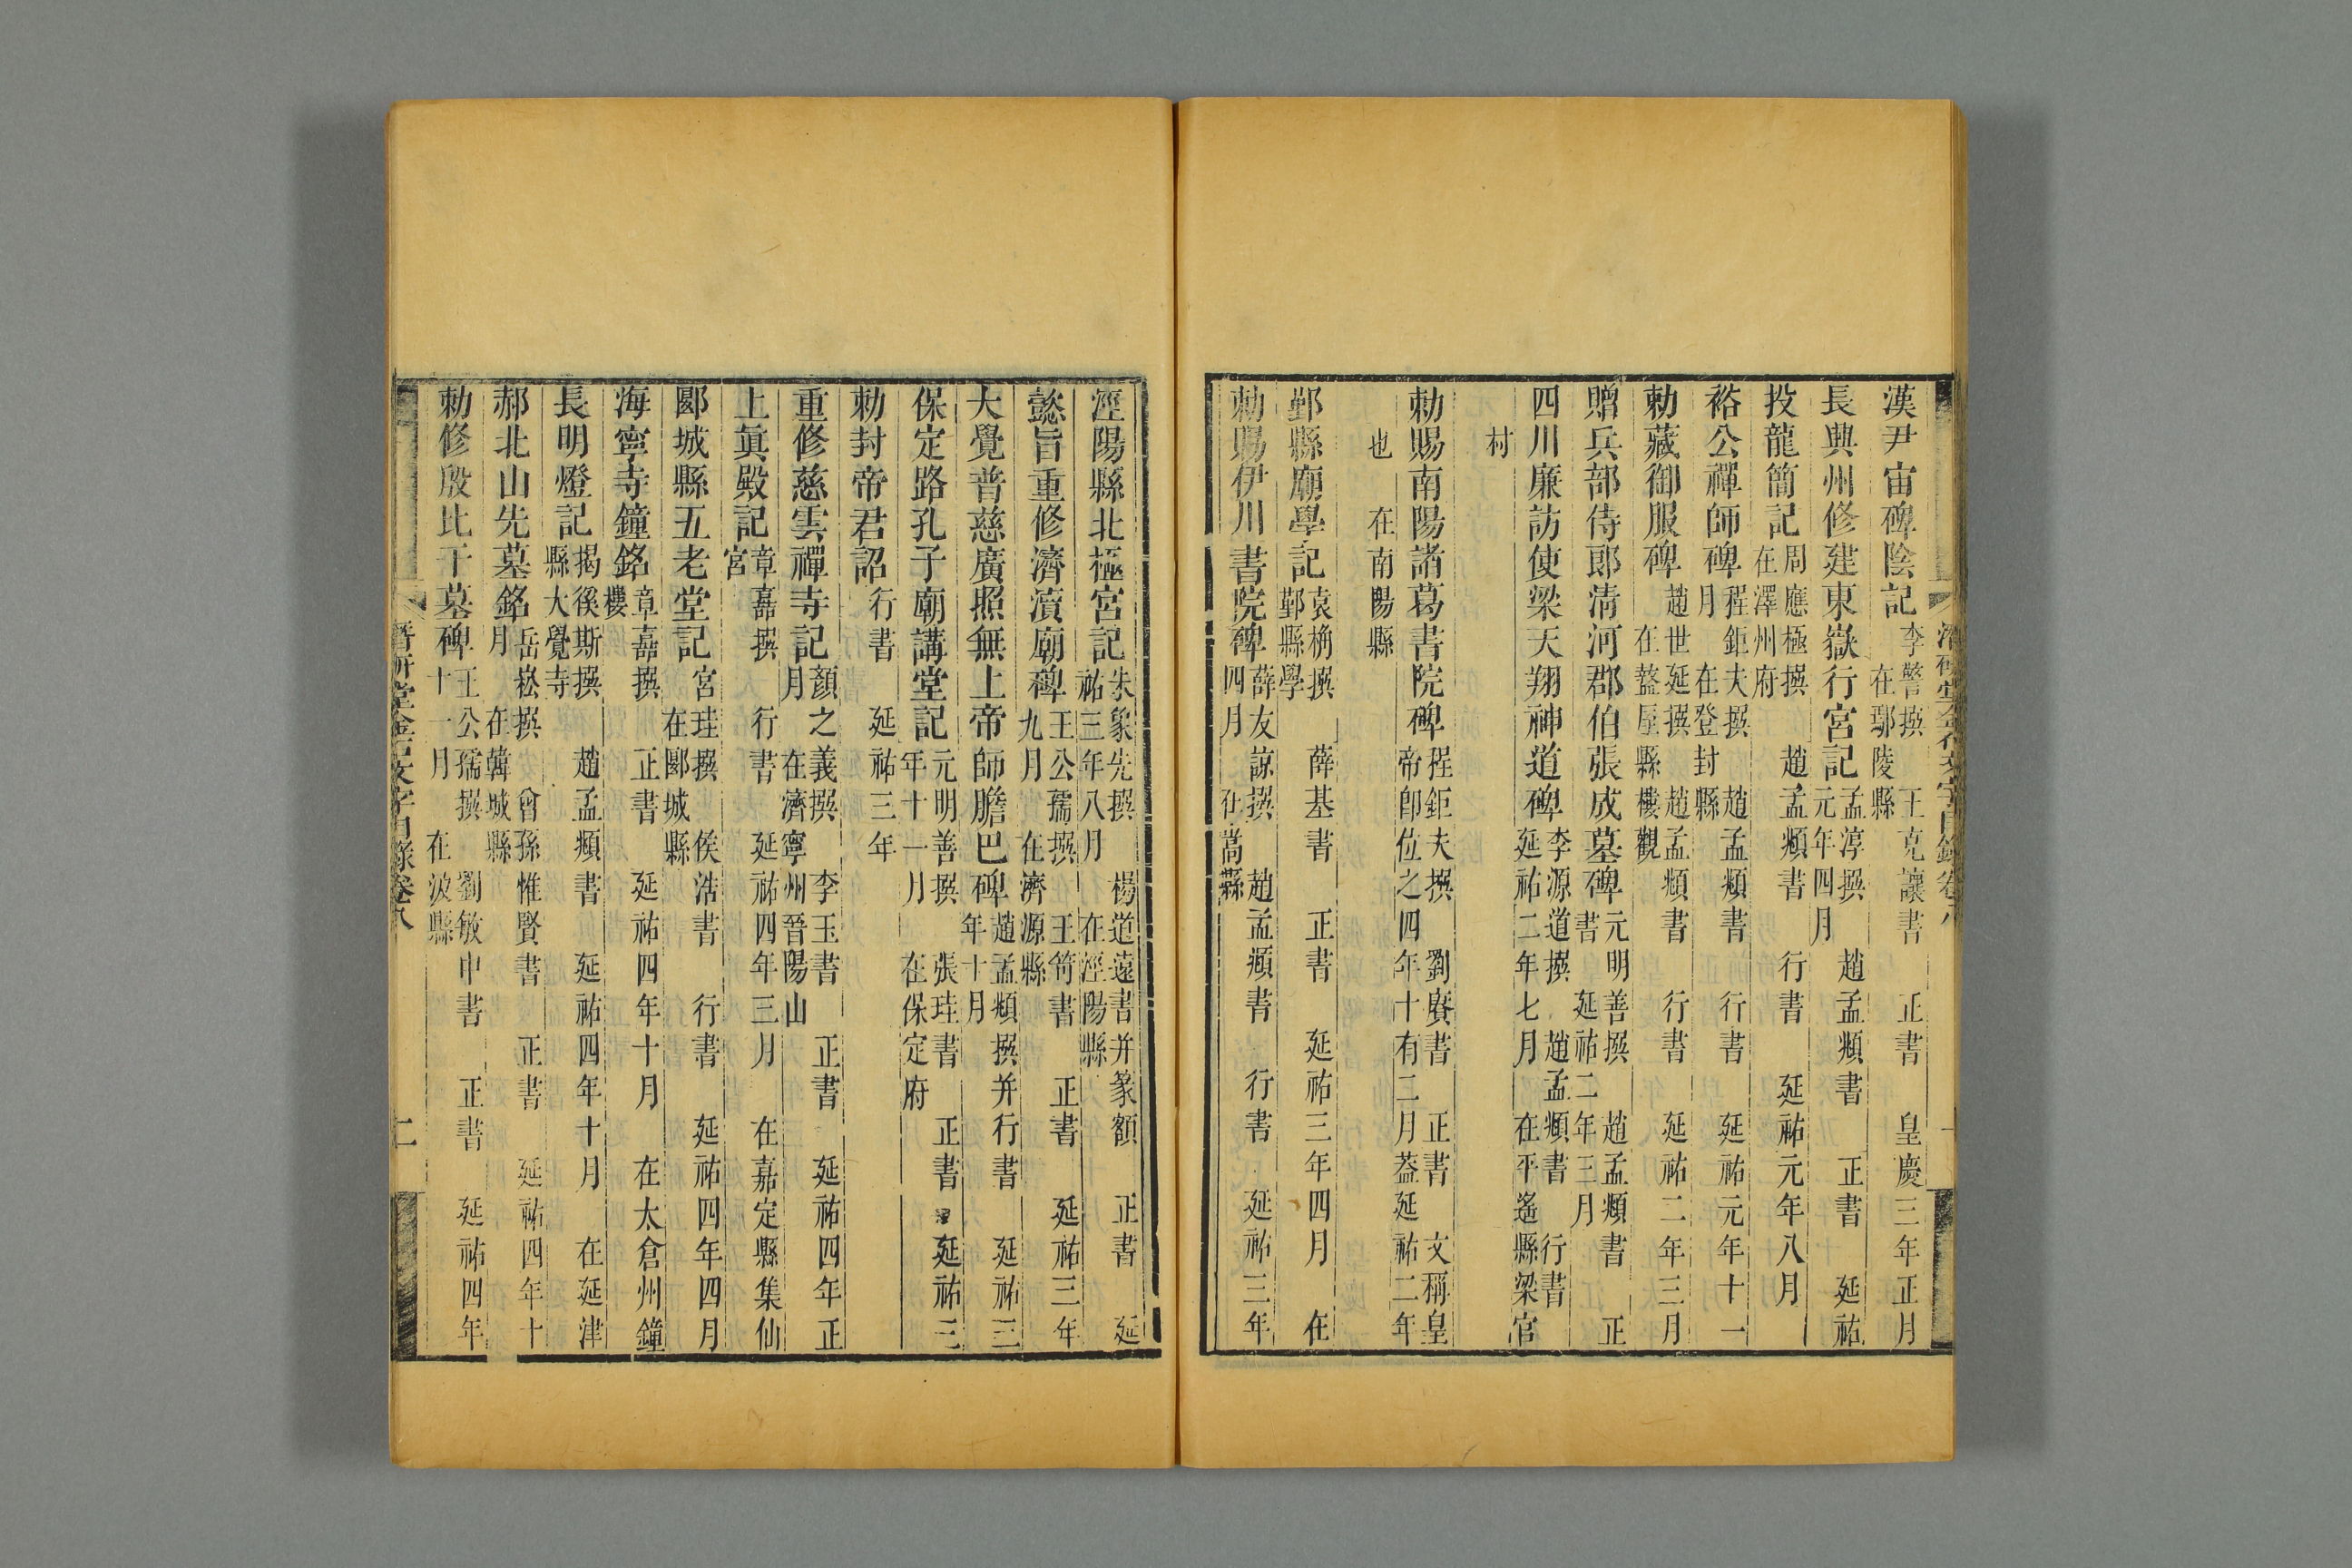 漢尹宙碑陰記李警撰　王克讓書　正書　皇慶三年正月在鄢陵縣
長興州修建東嶽行宮記孟淳撰　趙孟頫書　正書　延祐元年四月
投龍簡記周應極撰　趙孟頫書　行書　延祐元年八月在澤州府
裕公禪師碑程鉅夫撰　趙孟頫書　行書　延祐元年十一月　在登封縣
勅藏御服碑趙世延撰　趙孟頫書　行書　延祐二年三月在盩厔縣樓觀
贈兵部侍郎清河郡伯張成墓碑元明善撰　趙孟頫書　正書　延祐二年三月
四川廉訪使梁天翔神道碑李源道撰　趙孟頫書　行書延祐二年七月　在平遙縣梁官
村
勅賜南陽諸葛書院碑程鉅夫撰　劉賡書　正書　文稱皇帝卽位之四年十有二月葢延祐二年
也　在南陽縣
鄞縣廟學記袁桷撰　薛基書　正書　延祐三年四月　在鄞縣學
勅賜伊川書院碑薛友諒撰　趙孟頫書　行書　延祐三年四月　在嵩縣
涇陽縣北極宮記朱象先撰　楊道遠書并篆額　正書　延祐三年八月　在涇陽縣
懿旨重修濟瀆廟碑王公孺撰　王笴書　正書　延祐三年九月　在濟源縣
大覺普慈廣照無上帝師膽巴碑趙孟頫撰并行書　延祐三年十月
保定路孔子廟講堂記元明善撰　張珪書　正書　延祐三年十一月　在保定府
勅封帝君詔行書　延祐三年
重修慈雲禪寺記顏之義撰　李玉書　正書　延祐四年正月　在濟寧州晉陽山
上眞殿記章嘉撰　行書　延祐四年三月　在嘉定縣集仙宮
郾城縣五老堂記宮珪撰　侯浩書　行書　延祐四年四月在郾城縣
海寧寺鐘銘章嘉撰　正書　延祐四年十月　在太倉州鐘樓
長明燈記揭徯斯撰　趙孟頫書　延祐四年十月　在延津縣大覺寺
郝北山先墓銘岳崧撰　曾孫惟賢書　正書　延祐四年十月　在韓城縣
勅修殷比干墓碑王公孺撰　劉敏中書　正書　延祐四年十一月　在汲縣
卷八
二